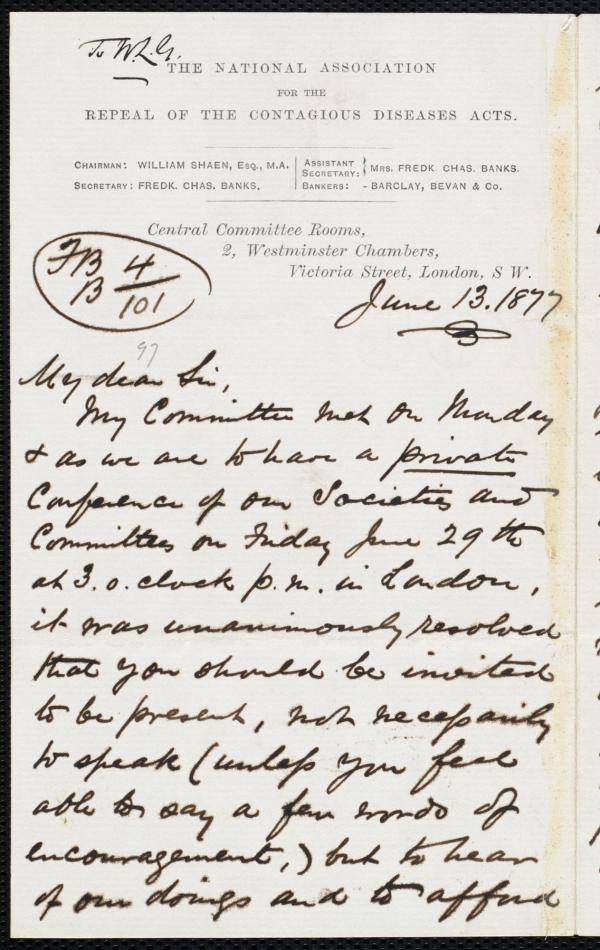 To W.L.G.
THE NATIONAL ASSOCIATION
FOR THE
REPEAL OF THE CONTAGIOUS DISEASES ACTS.
CHAIRMAN: WILLIAM SHAEN, ESQ., M.A.
SECRETARY: FREDK. CHAS. BANKS.
ASSISTANT SECRETARY: } MRS. FREDK. CHAS. BANKS.
BANKERS: - BARCLAY, BEVAN & CO.
Central Committee Rooms,
2, Westminster Chambers,
Victoria Street, London, S W.
FB 4
B 101
June 13. 1877
97
My dear Sir,
My Committee met on Monday
& as we are to have a private
Conference of our Societies and
Committees on Friday June 29th
at 3. o. clock p.m. in London,
it was unanimously resolved
that you should be invited
to be present, not necessarily
to speak (unless you feel
able to say a few words of
encouragement,) but to hear
of our doings and to afford